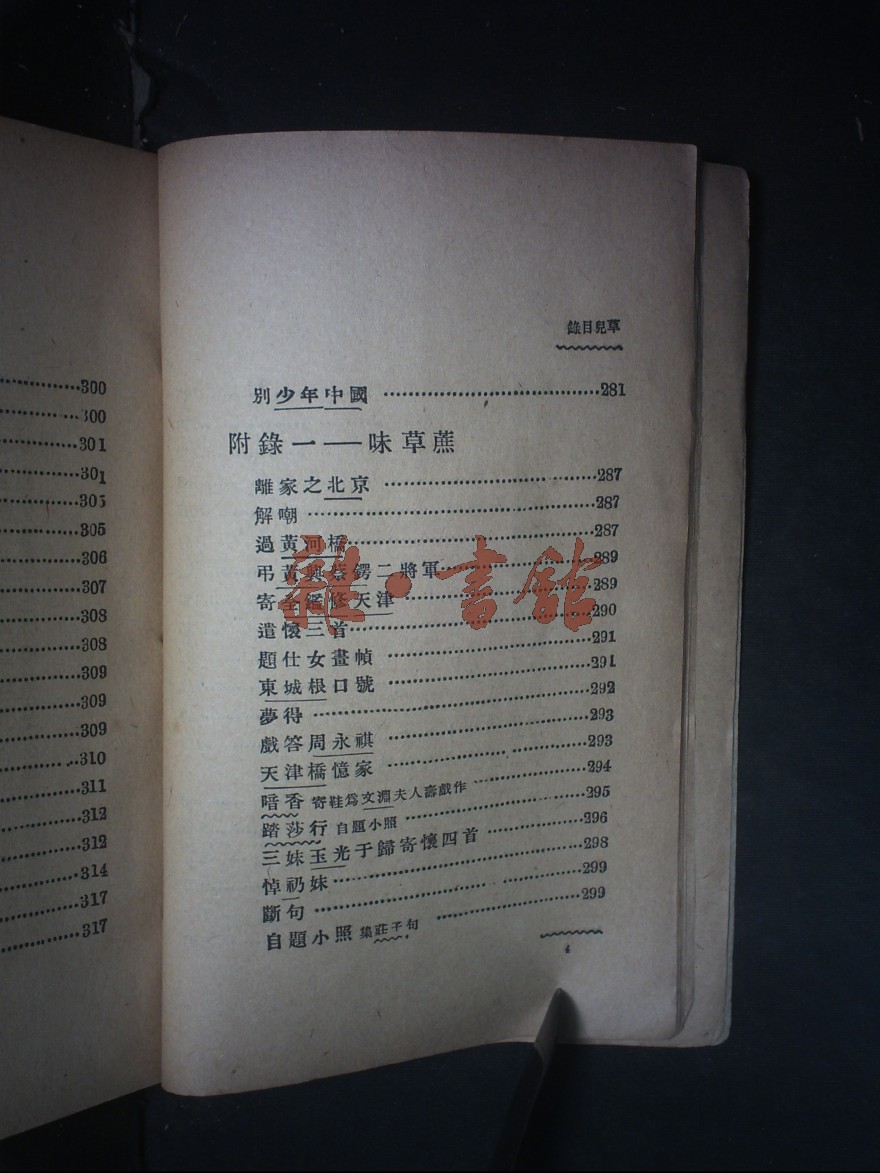 ……300
……300
……301
……301
……303
……305
……306
……307
……308
……308
……309
……309
……309
……310
……311
……312
……312
……314
……317
……317
草兒目錄
別少年中國……281
附錄一——味草蔗
離家之北京……287
解嘲……287
過黃河橋……287
弔黃興蔡鍔二將軍……289
寄全鑑修天津……289
遣懷三首……290
題仕女畫幀……291
東城根口號……291
夢得……292
戲答周永祺……293
天津橋憶家……293
暗香 寄鞋爲文淵夫人壽戲作……294
踏莎行 自題小照……295
三妹玉光于歸寄懷四首……296
悼礽妹……298
斷句……299
自題小照 集莊子句……299
4
雜·書館